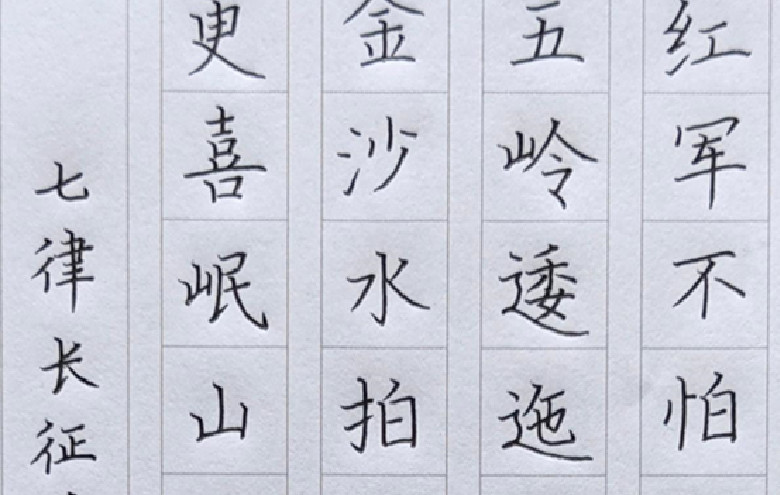 红军不怕
五岭逶迤
金沙水拍
更喜岷山
七律长征